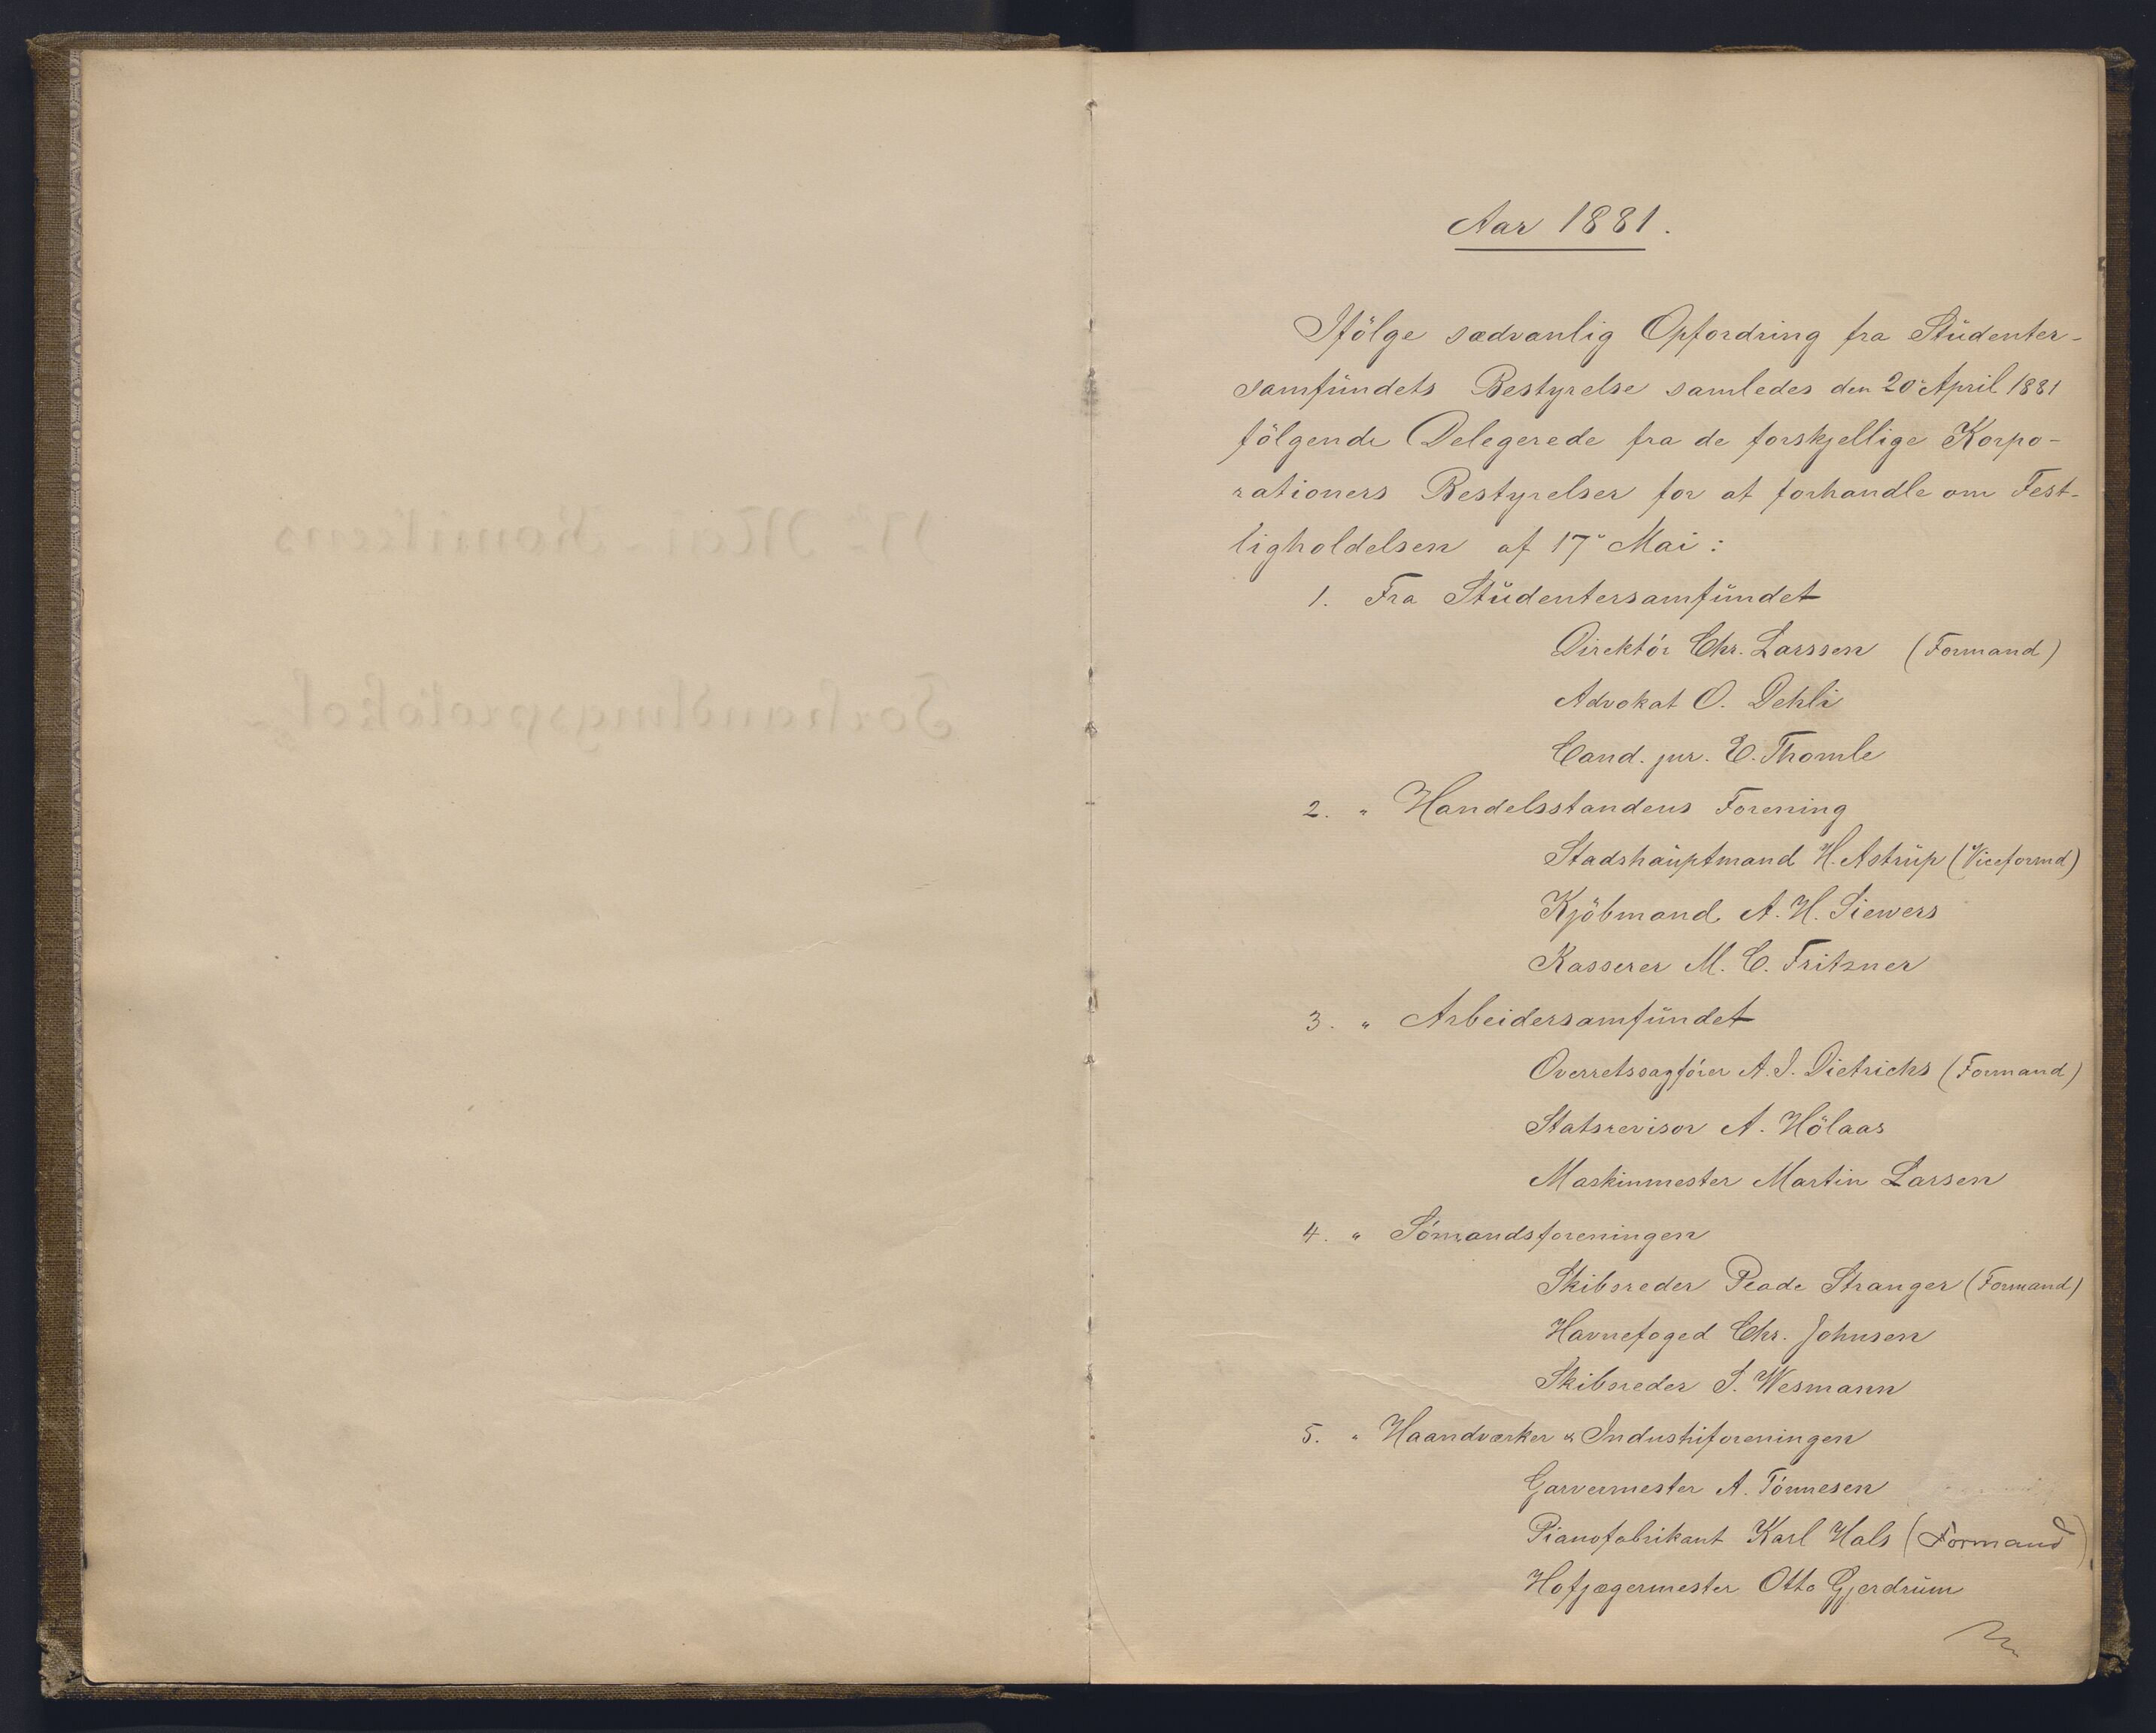 17de Mai-Komiteens
Forhandlingsprotokol
Aar 1881.
Ifölge sædvanlig Opfordring fra Studenter-
samfundets Bestyrelse samledes den 20de April 1881
fölgende Delegerede fra de forskjellige Korpo-
rationers Bestyrelser for at forhandle om Fest-
ligholdelsen af 17de Mai:
1. Fra Studentersamfundet
Direktör Chr. Larssen (Formand)
Advokat O. Dehli
Cand. jur. E. Thomle
2. " Handelsstandens Forening
Stadshauptmand H. Astrup (Viceformd)
Kjöbmand A. H. Siewers
Kasserer M. C. Fritzner
3. " Arbeidersamfundet
Overretssagförer A. J. Dietrichs (Formand)
Statsrevisor A. Hölaas
Maskinmester Martin Larsen
4. " Sömandsforeningen
Skibsreder Peade Stranger (Formand)
Havnefoged Chr. Johnsen
Skibsreder J. Wesmann
5. " Haandværker & Industriforeningen
Garvermester A. Tönnesen
Pianofabrikant Karl Hals (Formand)
Hofjægermester Otto Gjerdrum